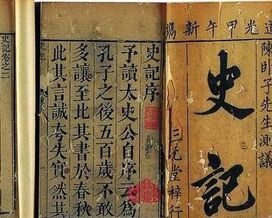 道光甲午新鐫
陳卧子先生測議
史記
三元堂梓行
史記序
予讀太史公自序云為
孔子之後五百歲不敢
多讓至比其書於春秋
此其言誠夸失實然其
史記卷之